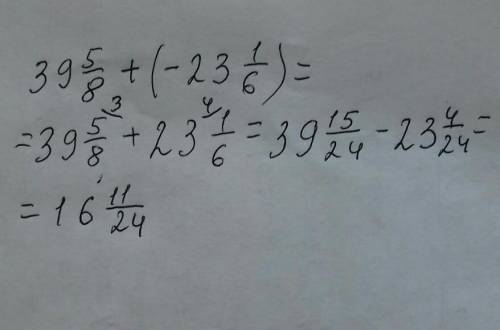 39 5/8 + (- 23 1/6) =
= 39 5/8 ³ + 23 ⁴ 1/6 = 39 15/24 - 23 4/24 =
= 16 11/24